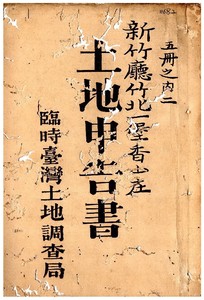 五冊之内二
新竹廳竹北一堡香山庄
土地申告書
臨時臺灣土地調查局